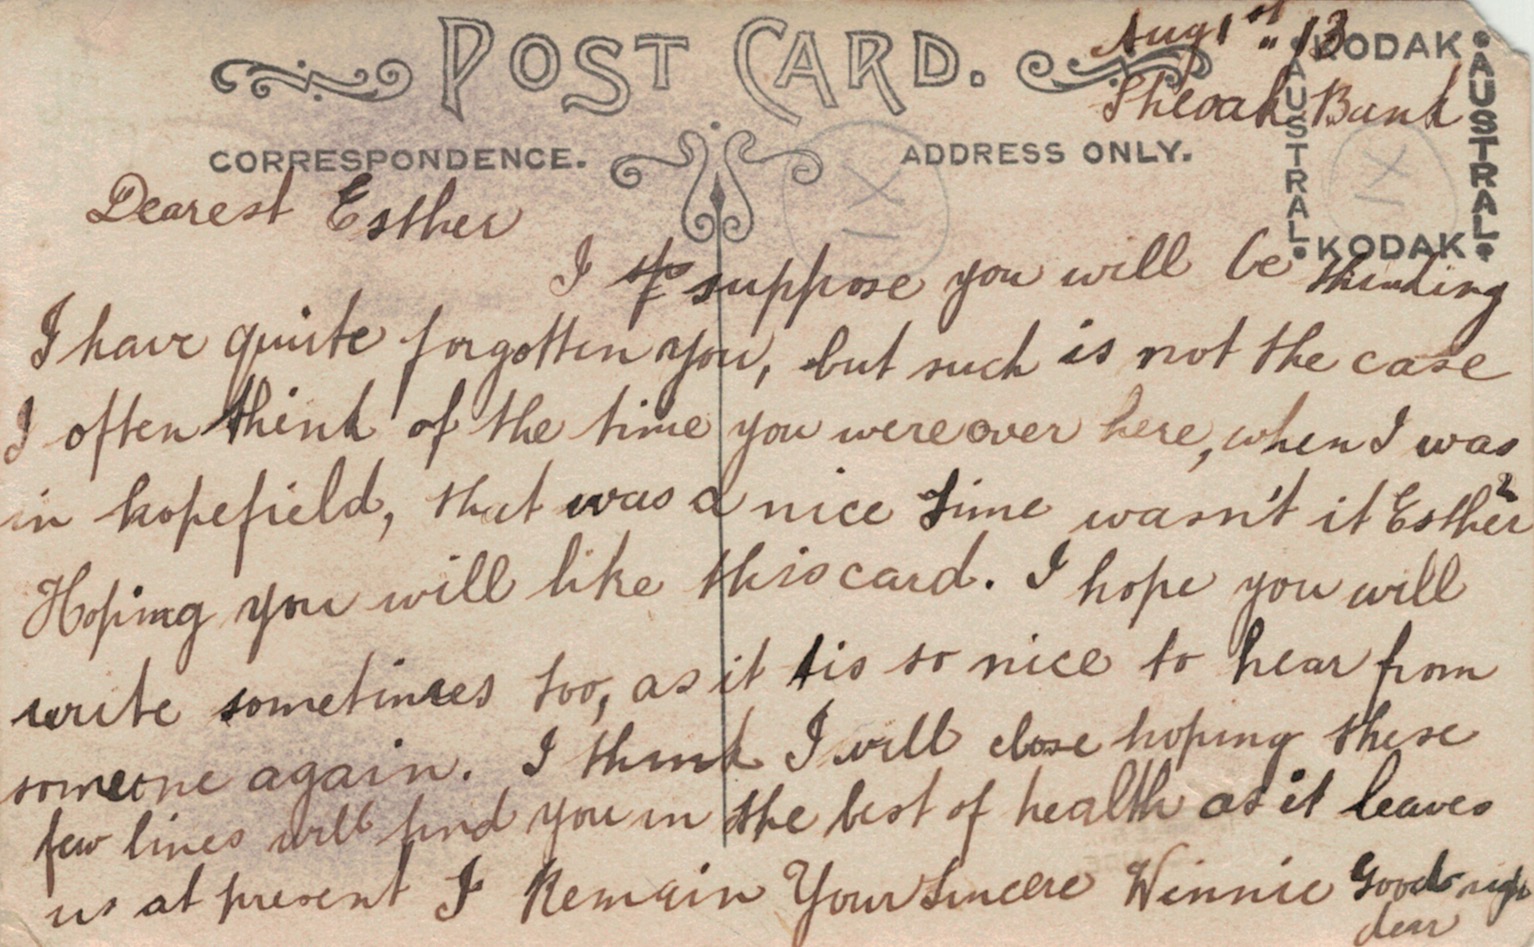 POST CARD.
Aug 1st " 13
Sheoak Bank
CORRESPONDENCE.
ADDRESS ONLY.
KODAK
AUSTRAL
AUSTRAL
KODAK
Dearest Esther
I suppose you will be thinking
I have quite forgotten you, but such is not the case
I often think of the time you were over here, when I was
in hopefield, that was a nice time wasn't it Esther?
Hoping you will like this card. I hope you will
write sometimes too, as it tis so nice to hear from
someone again. I think I will close hoping these
few lines will find you in the best of health as it leaves
us at present I Remain Your Sincere Winnie Good nigh
dear